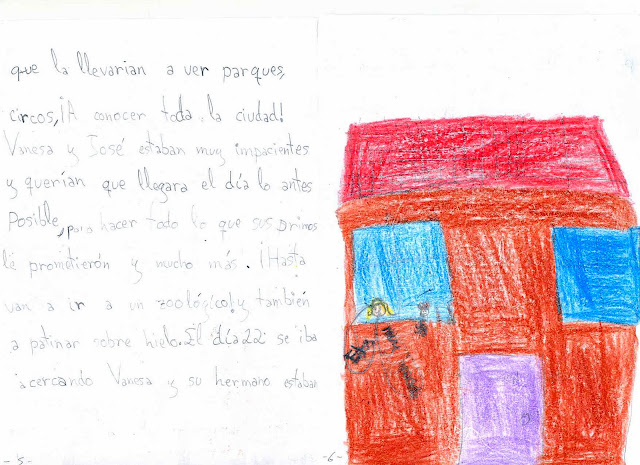 que la llevarian a ver parques,
circos, ¡A conocer toda la ciudad!
Vanesa y José estaban muy impacientes
y querían que llegara el día lo antes
Posible, para hacer todo lo que sus primos
le prometierón y mucho más. ¡Hasta
van a ir a un zoológico! y también
a patinar sobre hielo. El día 22 se iba
acercando Vanesa y su hermano estaban
-5-
-6-